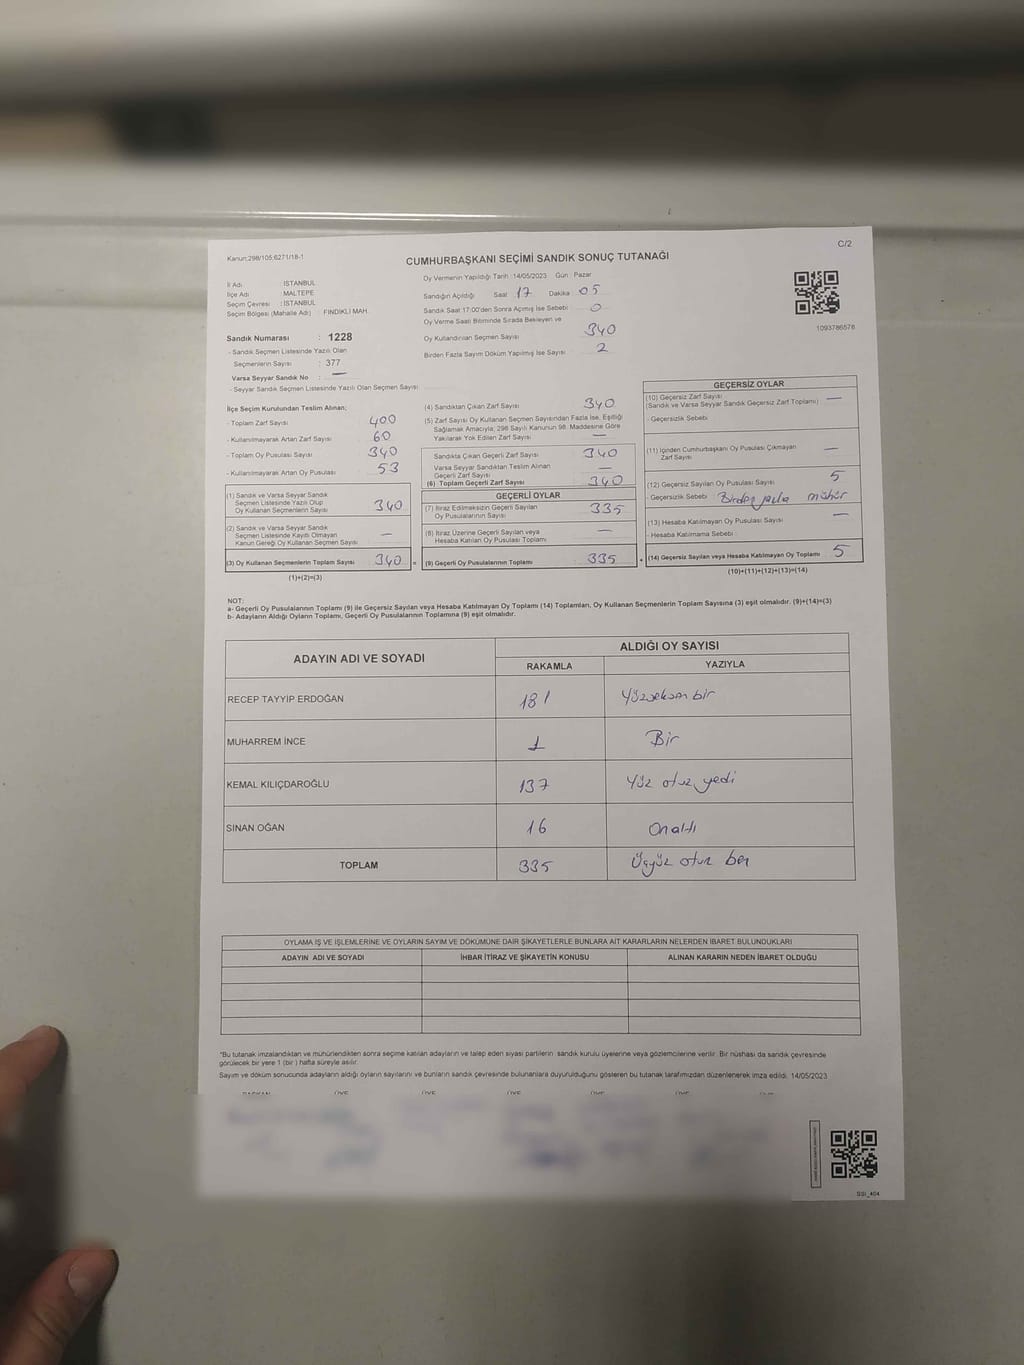 C/2
Kanun:298/105;6271/18-1
CUMHURBAŞKANI SEÇİMİ SANDIK SONUÇ TUTANAĞI
İl Adı İSTANBUL
İlçe Adı MALTEPE
Seçim Çevresi : İSTANBUL
Seçim Bölgesi (Mahalle Adı) : FINDIKLI MAH.
Sandık Numarası : 1228
- Sandık Seçmen Listesinde Yazılı Olan
Seçmenlerin Sayısı : 377
Varsa Seyyar Sandık No : —
- Seyyar Sandık Seçmen Listesinde Yazılı Olan Seçmen Sayısı
Oy Vermenin Yapıldığı Tarih :14/05/2023 Gün : Pazar
Sandığın Açıldığı Saat 17 Dakika 05
Sandık Saat 17:00'den Sonra Açılmış İse Sebebi 0
Oy Verme Saati Bitiminde Sırada Bekleyen ve
Oy Kullandırılan Seçmen Sayısı 340
Birden Fazla Sayım Döküm Yapılmış İse Sayısı 2
1093786576
İlçe Seçim Kurulundan Teslim Alınan;
- Toplam Zarf Sayısı 400
- Kullanılmayarak Artan Zarf Sayısı 60
- Toplam Oy Pusulası Sayısı 340
- Kullanılmayarak Artan Oy Pusulası 53
(1) Sandık ve Varsa Seyyar Sandık
Seçmen Listesinde Yazılı Olup
Oy Kullanan Seçmenlerin Sayısı 340
(2) Sandık ve Varsa Seyyar Sandık
Seçmen Listesinde Kayıtlı Olmayan
Kanun Gereği Oy Kullanan Seçmen Sayısı —
(3) Oy Kullanan Seçmenlerin Toplam Sayısı 340 =
(1)+(2)=(3)
(4) Sandıktan Çıkan Zarf Sayısı 340
(5) Zarf Sayısı Oy Kullanan Seçmen Sayısından Fazla İse, Eşitliği
Sağlamak Amacıyla, 298 Sayılı Kanunun 98. Maddesine Göre
Yakılarak Yok Edilen Zarf Sayısı —
Sandıkta Çıkan Geçerli Zarf Sayısı 340
Varsa Seyyar Sandıktan Teslim Alınan
Geçerli Zarf Sayısı —
(6) Toplam Geçerli Zarf Sayısı 340
GEÇERLİ OYLAR
(7) İtiraz Edilmeksizin Geçerli Sayılan
Oy Pusulalarının Sayısı 335
(8) İtiraz Üzerine Geçerli Sayılan veya
Hesaba Katılan Oy Pusulası Toplamı —
(9) Geçerli Oy Pusulalarının Toplamı 335 +
GEÇERSİZ OYLAR
(10) Geçersiz Zarf Sayısı
(Sandık ve Varsa Seyyar Sandık Geçersiz Zarf Toplamı) —
- Geçersizlik Sebebi
(11) İçinden Cumhurbaşkanı Oy Pusulası Çıkmayan
Zarf Sayısı —
(12) Geçersiz Sayılan Oy Pusulası Sayısı 5
- Geçersizlik Sebebi Birden fazla mühür
(13) Hesaba Katılmayan Oy Pusulası Sayısı —
- Hesaba Katılmama Sebebi
(14) Geçersiz Sayılan veya Hesaba Katılmayan Oy Toplamı 5
(10)+(11)+(12)+(13)=(14)
NOT:
a- Geçerli Oy Pusulalarının Toplamı (9) ile Geçersiz Sayılan veya Hesaba Katılmayan Oy Toplamı (14) Toplamları, Oy Kullanan Seçmenlerin Toplam Sayısına (3) eşit olmalıdır. (9)+(14)=(3)
b- Adayların Aldığı Oyların Toplamı, Geçerli Oy Pusulalarının Toplamına (9) eşit olmalıdır.
ADAYIN ADI VE SOYADI ALDIĞI OY SAYISI
RAKAMLA YAZIYLA
RECEP TAYYİP ERDOĞAN 181 Yüzseksen bir
MUHARREM İNCE 1 Bir
KEMAL KILIÇDAROĞLU 137 Yüz otuz yedi
SİNAN OĞAN 16 Onaltı
TOPLAM 335 Üçyüz otuz beş
OYLAMA İŞ VE İŞLEMLERİNE VE OYLARIN SAYIM VE DÖKÜMÜNE DAİR ŞİKAYETLERLE BUNLARA AİT KARARLARIN NELERDEN İBARET BULUNDUKLARI
ADAYIN ADI VE SOYADI İHBAR İTİRAZ VE ŞİKAYETİN KONUSU ALINAN KARARIN NEDEN İBARET OLDUĞU
*Bu tutanak imzalandıktan ve mühürlendikten sonra seçime katılan adayların ve talep eden siyasi partilerin sandık kurulu üyelerine veya gözlemcilerine verilir. Bir nüshası da sandık çevresinde
görülecek bir yere 1 (bir) hafta süreyle asılır.
Sayım ve döküm sonucunda adayların aldığı oyların sayılarını ve bunların sandık çevresinde bulunanlara duyurulduğunu gösteren bu tutanak tarafımızdan düzenlenerek imza edildi. 14/05/2023
BAŞKAN ÜYE ÜYE ÜYE ÜYE ÜYE ÜYE
SSİ_404